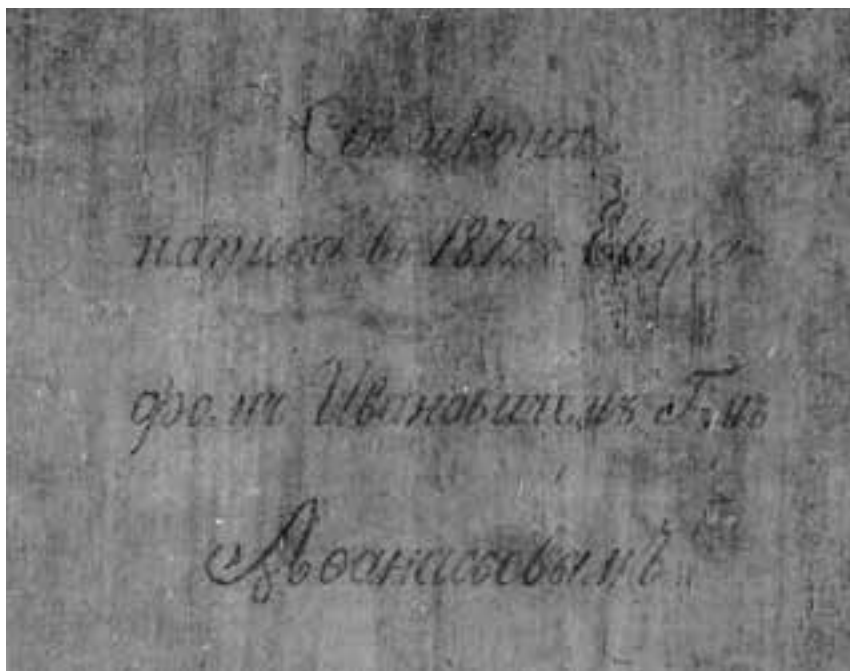 Сiя икона
написа въ 1872 г. Евгра-
фомъ Ивановичемъ Г-мъ
Аѳанасьевымъ